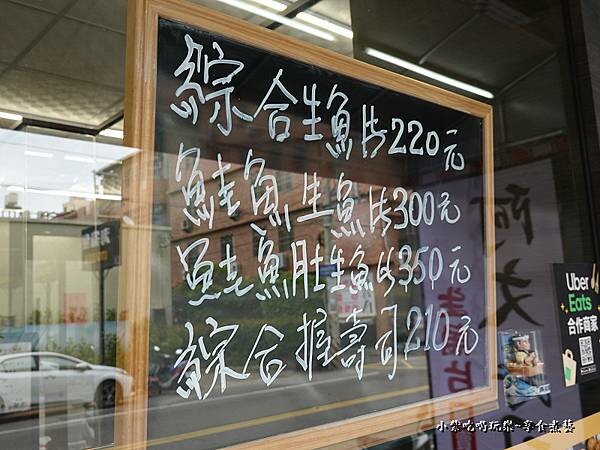 綜合生魚片220元
鮭魚生魚片300元
鮭魚肚生魚片350元
綜合握壽司210元
Uber
Eats
合作商家
小紫吃喝玩樂~享食煮藝